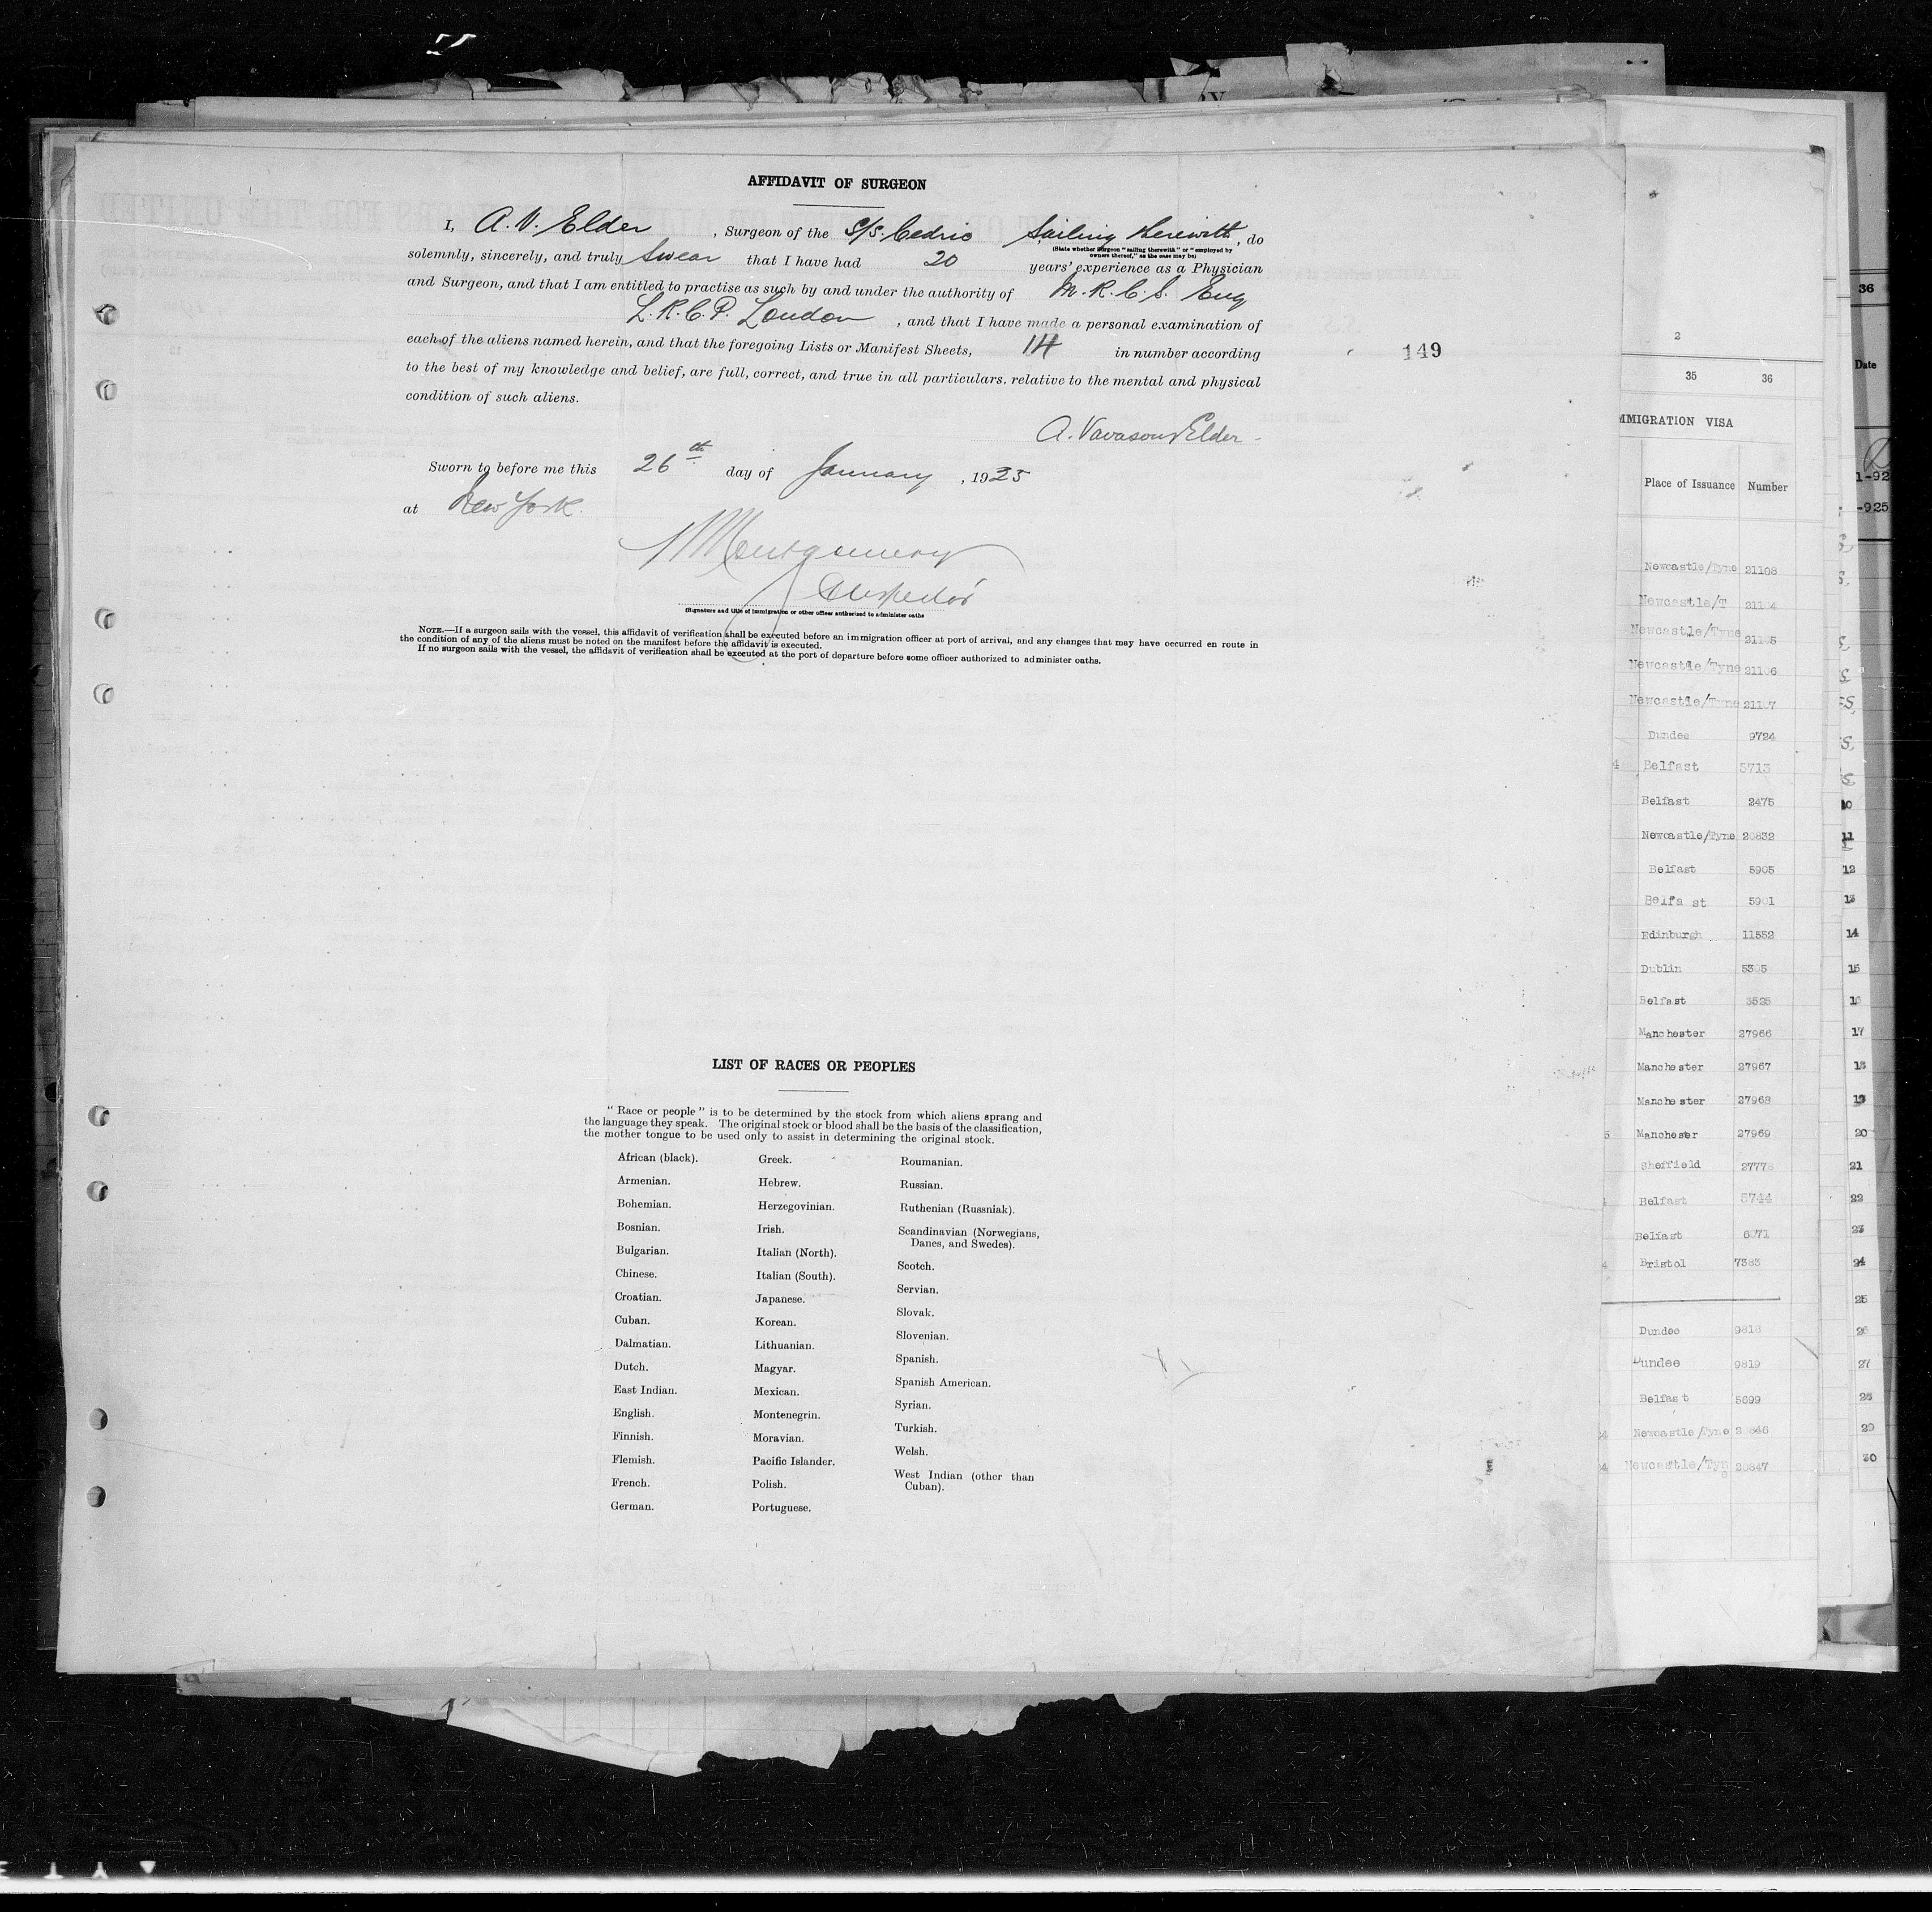 AFFIDAVIT OF SURGEON
I, A. V. Elder, Surgeon of the S/S. Cedric Sailing therewith, do
(State whether Surgeon "sailing therewith" or "employed by
owners thereof," as the case may be)
solemnly, sincerely, and truly Swear that I have had 20 years' experience as a Physician
and Surgeon, and that I am entitled to practise as such by and under the authority of M. R. C. S. Eng
L. R. C. P. London, and that I have made a personal examination of
each of the aliens named herein, and that the foregoing Lists or Manifest Sheets, 14 in number according
to the best of my knowledge and belief, are full, correct, and true in all particulars. relative to the mental and physical
condition of such aliens.
149
A. Vavasour Elder
Sworn to before me this 26th day of January, 1925
at New York.
Montgomery
Inspector
(Signature and title of immigration or other officer authorized to administer oaths
NOTE.—If a surgeon sails with the vessel, this affidavit of verification shall be executed before an immigration officer at port of arrival, and any changes that may have occurred en route in
the condition of any of the aliens must be noted on the manifest before the affidavit is executed.
If no surgeon sails with the vessel, the affidavit of verification shall be executed at the port of departure before some officer authorized to administer oaths.
LIST OF RACES OR PEOPLES
"Race or people" is to be determined by the stock from which aliens sprang and
the language they speak. The original stock or blood shall be the basis of the classification,
the mother tongue to be used only to assist in determining the original stock.
African (black).
Armenian.
Bohemian.
Bosnian.
Bulgarian.
Chinese.
Croatian.
Cuban.
Dalmatian.
Dutch.
East Indian.
English.
Finnish.
Flemish.
French.
German.
Greek.
Hebrew.
Herzegovinian.
Irish.
Italian (North).
Italian (South).
Japanese.
Korean.
Lithuanian.
Magyar.
Mexican.
Montenegrin.
Moravian.
Pacific Islander.
Polish.
Portuguese.
Roumanian.
Russian.
Ruthenian (Russniak).
Scandinavian (Norwegians,
Danes, and Swedes).
Scotch.
Servian.
Slovak.
Slovenian.
Spanish.
Spanish American.
Syrian.
Turkish.
Welsh.
West Indian (other than
Cuban).
2
35 36
MMIGRATION VISA
Place of Issuance Number
Newcastle/Tyne 21108
Newcastle/T 21104
Newcastle/Tyne 21105
Newcastle/Tyne 21106
Newcastle/Tyne 21107
Dundee 9724
Belfast 5713
Belfast 2475
Newcastle/Tyne 20832
Belfast 5905
Belfa st 5901
Edinburgh 11552
Dublin 5305
Belfast 3525
Manchester 27966
Manchester 27967
Manchester 27968
Manchester 27969
Sheffield 27778
Belfast 5744
Belfast 6071
Bristol 7383
Dundee 9818
Dundee 9819
Belfast 5699
Newcastle/Tyne 20846
Newcastle/Tyne 20847
36
Date
1-92
-925
10
11
12
13
14
15
16
17
18
19
20
21
22
23
24
25
26
27
28
29
30